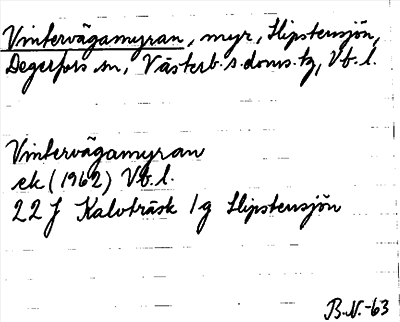 Vintervägamyran, myr, Slipstensjön,
Degerfors sn, Västerb. s. doms. tg, Vb. l.
Vintervägamyran
ek (1962) Vb. l.
22 J Kalvträsk 1 g Slipstensjön
B.N. -63